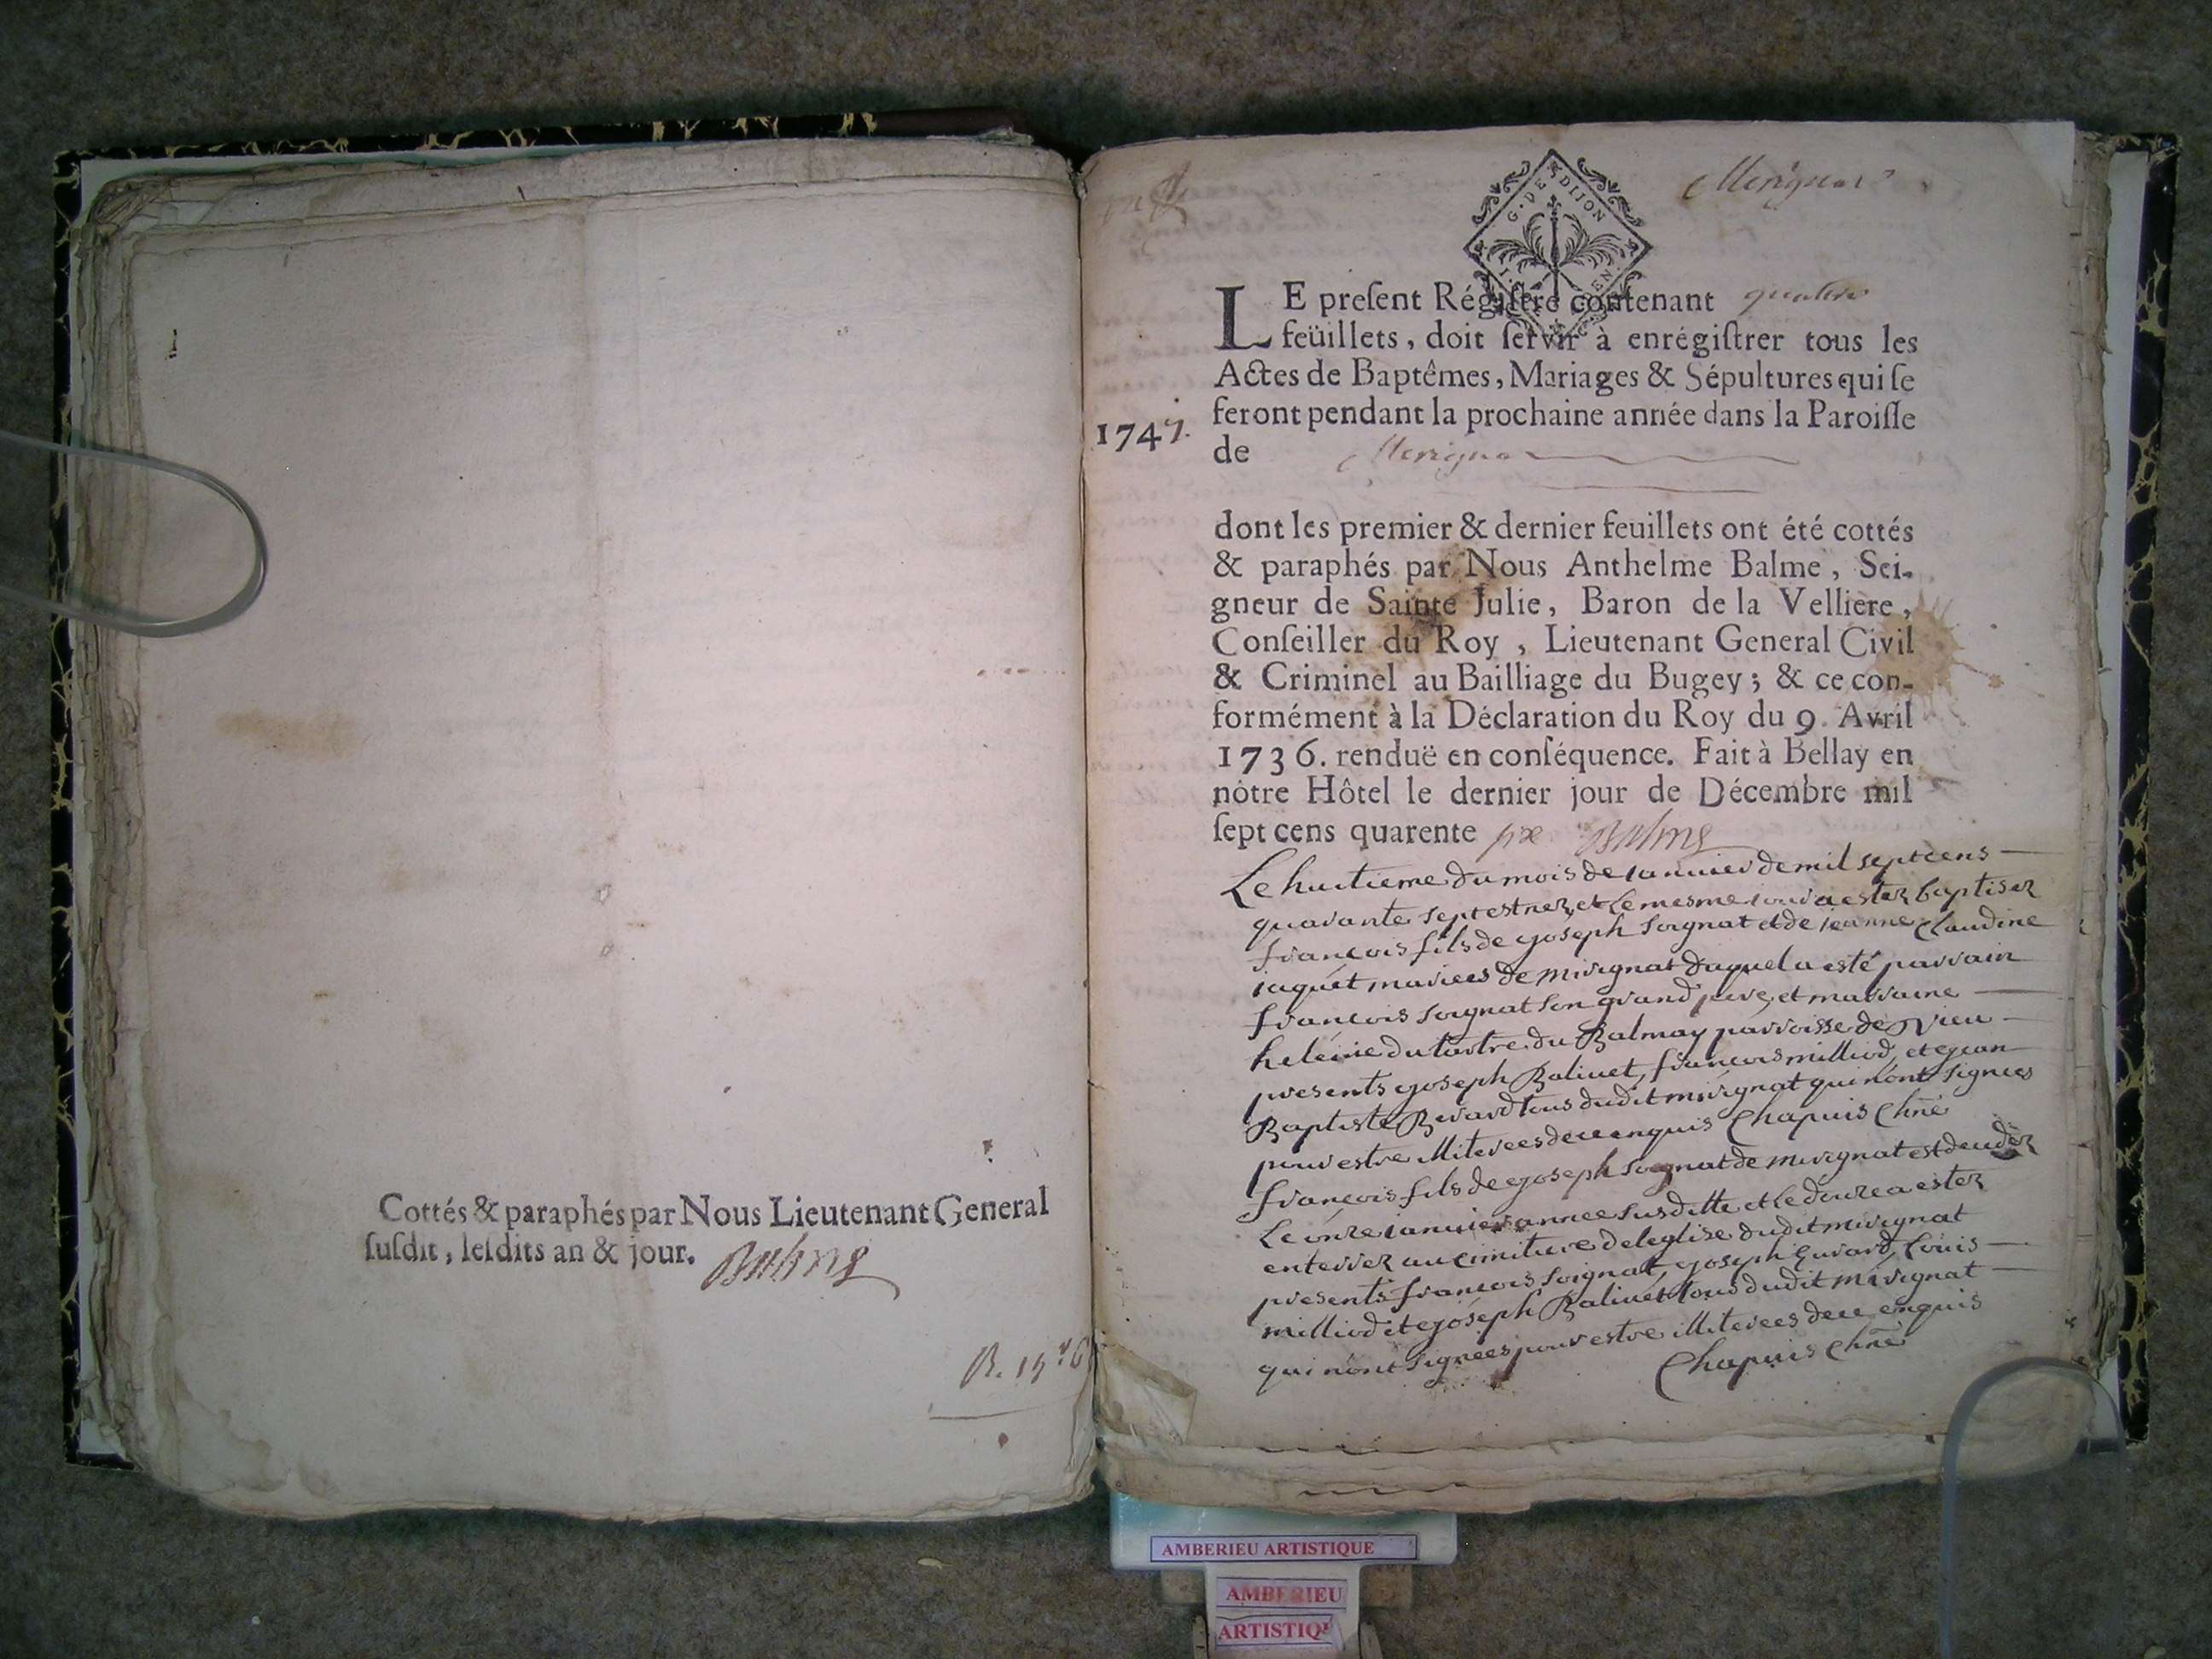 Cottés & paraphés par Nous Lieutenant General
ſuſdit, leſdits an & jour. Balme
Merignat
G. DE DIJON
LE preſent Régiſtre contenant quatre
feüillets, doit ſervir à enrégiſtrer tous les
Actes de Baptêmes, Mariages & Sépultures qui ſe
feront pendant la prochaine année dans la Paroiſſe
1747.
de Merigna
dont les premier & dernier feuillets ont été cottés
& paraphés par Nous Anthelme Balme, Sei-
gneur de Sainte Julie, Baron de la Velliere,
Conſeiller du Roy, Lieutenant General Civil
& Criminel au Bailliage du Bugey; & ce con-
formément à la Déclaration du Roy du 9. Avril
1736. renduë en conſéquence. Fait à Bellay en
nôtre Hôtel le dernier jour de Décembre mil
ſept cens quarente six Balme
Le huitieme du mois de ianuier de mil sept cens
quarante sept est nez, et le mesme iour a estez baptisez
francois fils de joseph soignat et de ieanne claudine
iaquet mariees de mirignat duquel a esté parrain
francois soignat son grand pere, et marraine
heleine du tartre du Balmay parroisse de vieu
presents joseph Balivet, francois milliod, et jean
Baptiste Berard tous dudit mirignat qui n'ont signees
pour estre illiterees de ce enquis Chapuis Chñe
francois fils de joseph soignat de mirignat est decedez
Le onze ianuier annee susditte et le douze a estez
enterrez au cimitiere de leglise dudit mirignat
presents francois soignat, joseph Euvard, Louis
milliod et joseph Balivet tous dudit mirignat
qui n'ont signees pour estre illiterees de ce enquis
Chapuis Chñe
AMBERIEU ARTISTIQUE
AMBERIEU
ARTISTIQ